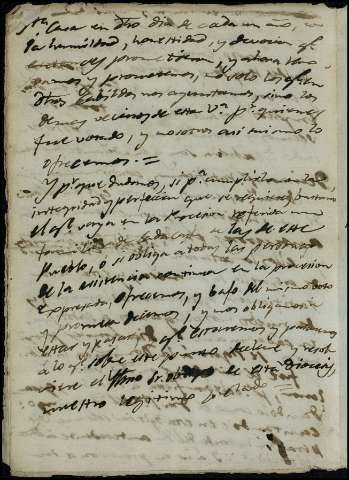 Sta Casa en dho dia de cada un año, con
la humildad, honestidad, y devocion qe
prometieron, y ahora
y prometemos, no solo los qe en
dhos Cabildos nos ajuntamos, sino los
demas vecinos de esta Va. pr quienes
fue votado, y nosotros asi mismo lo
ofrecemos. =
Y pr que dudamos, si pa cumplirlo con la
integridad y perfeccion que se requiere bastara
el qe vaya en la Procesion referida uno
de cada casa de este
Pueblo, o si obliga a todas las personas
de la asistencia continua en la procesion
expresada, ofrecemos, y bajo del mismo voto
y promesa decimos, y nos obligamos a
estar y pasar, qe estaremos y pasaremos
a lo qe sobre este punto declare y resol
viere el Yllmo Sr. obispo de esta Diocesis,
nuestro legitimo prelado =